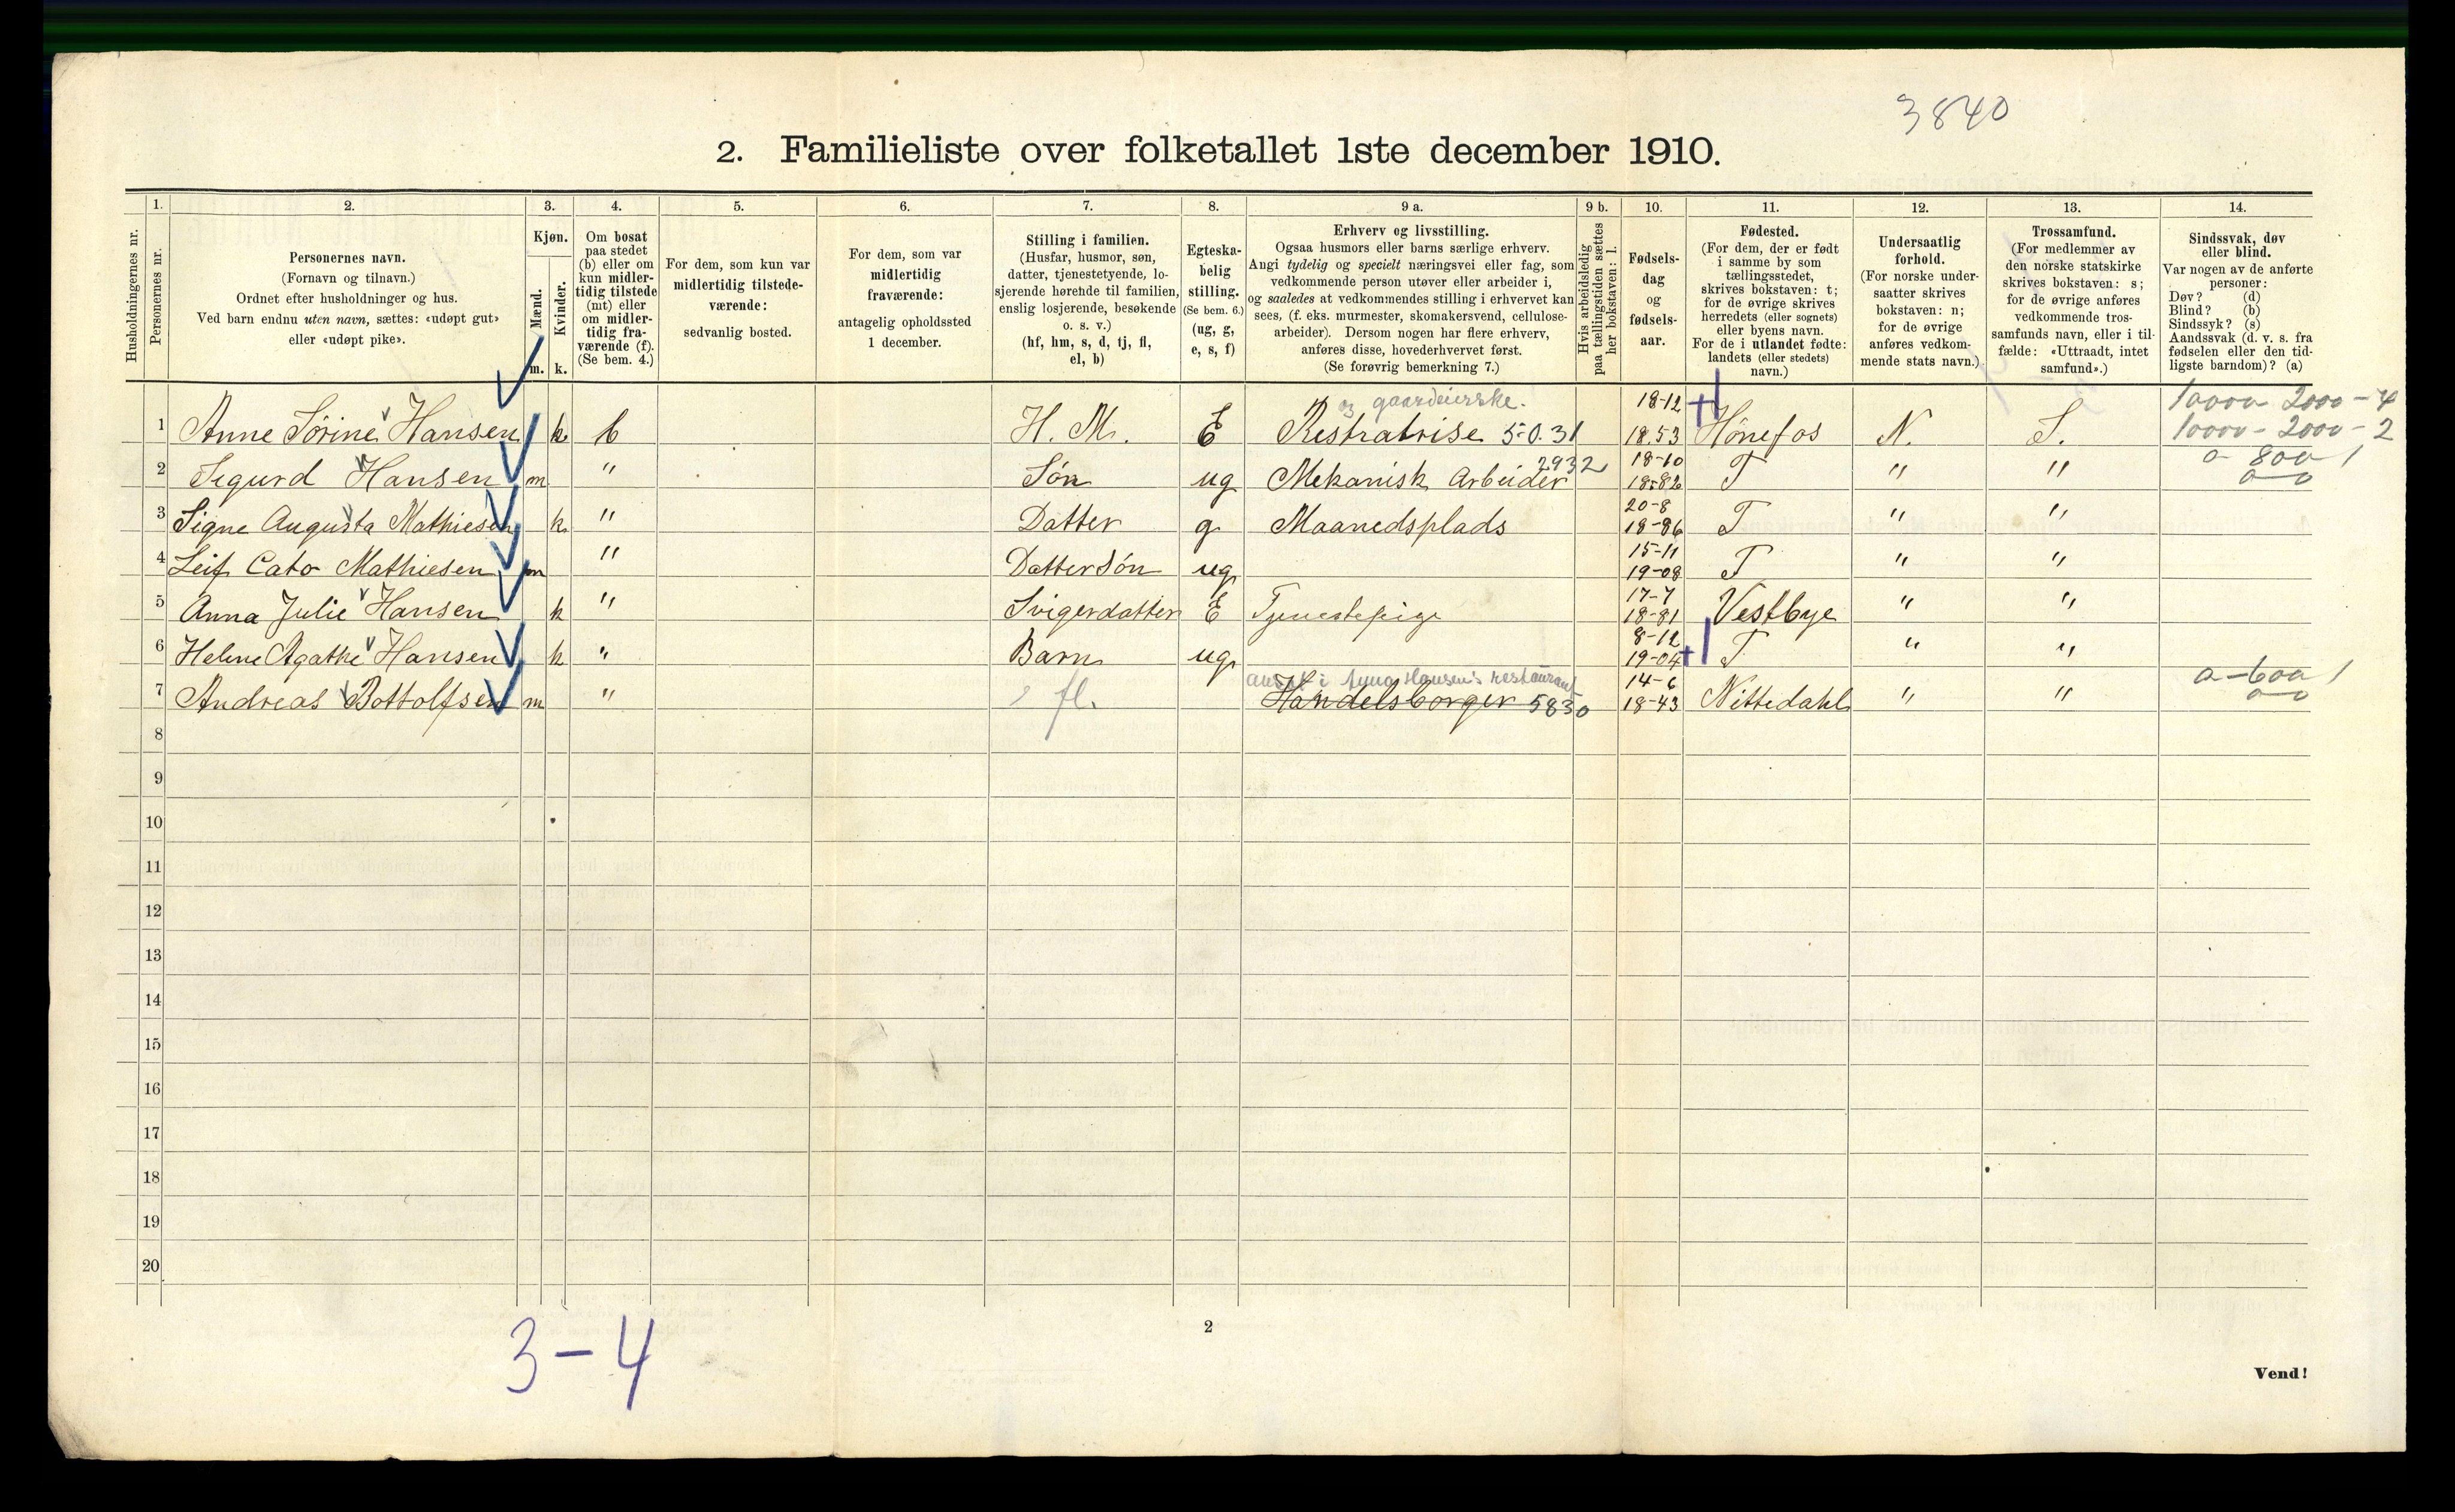 3840
2. Familieliste over folketallet 1ste december 1910.
1. 2. 3. 4. 5. 6. 7. 8. 9 a. 9 b. 10. 11. 12. 13. 14.
Husholdningernes nr.
Personernes nr.
Personernes navn.
(Fornavn og tilnavn.)
Ordnet efter husholdninger og hus.
Ved barn endnu uten navn, sættes: «udøpt gut»
eller «udøpt pike».
Kjøn.
Mænd.
Kvinder.
m. k.
Om bosat
paa stedet
(b) eller om
kun midler-
tidig tilstede
(mt) eller
om midler-
tidig fra-
værende (f).
(Se bem. 4.)
For dem, som kun var
midlertidig tilstede-
værende:
sedvanlig bosted.
For dem, som var
midlertidig
fraværende:
antagelig opholdssted
1 december.
Stilling i familien.
(Husfar, husmor, søn,
datter, tjenestetyende, lo-
sjerende hørende til familien,
enslig losjerende, besøkende
o. s. v.)
(hf, hm, s, d, tj, fl,
el, b)
Egteska-
belig
stilling.
(Se bem. 6.)
(ug, g,
e, s, f)
Erhverv og livsstilling.
Ogsaa husmors eller barns særlige erhverv.
Angi tydelig og specielt næringsvei eller fag, som
vedkommende person utøver eller arbeider i,
og saaledes at vedkommendes stilling i erhvervet kan
sees, (f. eks. murmester, skomakersvend, cellulose-
arbeider). Dersom nogen har flere erhverv,
anføres disse, hovederhvervet først.
(Se forøvrig bemerkning 7.)
Hvis arbeidsledig
paa tællingstiden sættes
her bokstaven: l.
Fødsels-
dag
og
fødsels-
aar.
Fødested.
(For dem, der er født
i samme by som
tællingsstedet,
skrives bokstaven: t;
for de øvrige skrives
herredets (eller sognets)
eller byens navn.
For de i utlandet fødte:
landets (eller stedets)
navn.)
Undersaatlig
forhold.
(For norske under-
saatter skrives
bokstaven: n;
for de øvrige
anføres vedkom-
mende stats navn.)
Trossamfund.
(For medlemmer av
den norske statskirke
skrives bokstaven: s;
for de øvrige anføres
vedkommende tros-
samfunds navn, eller i til-
fælde: «Uttraadt, intet
samfund».)
Sindssvak, døv
eller blind.
Var nogen av de anførte
personer:
Døv? (d)
Blind? (b)
Sindssyk? (s)
Aandssvak (d. v. s. fra
fødselen eller den tid-
ligste barndom)? (a)
og gaardeierske. 18-12 10000 - 2000 - 4
1 Anne Sørine Hansen k b H. M. E Restratrise 5-0.31 18.53 Hönefos N. S. 10000 - 2000 - 2
2 Sigurd Hansen m " Søn ug Mekanisk Arbeider 2932 18-10 18-82 T " " 0 - 800 1 0-0
3 Signe Augusta Mathiesen k " Datter g Maanedsplads 20-8 18-86 T " "
4 Leif Cato Mathiesen m " DatterSón ug 15-11 19-08 T " "
5 Anna Julie Hansen k " Svigerdatter E Tjenestepige 17-7 18-81 Vestbye " "
6 Helene Agathe Hansen k " Barn ug 8-12 19-04 T " "
ansat i Anna Hansen's restaurant 14-6 0 - 600 1
7 Andreas Bottolfsen m " fl. Handelsborger 5830 18-43 Nittedahl " " 0-0
8
9
10
11
12
13
14
15
16
17
18
19
20
3-4
2
Vend!